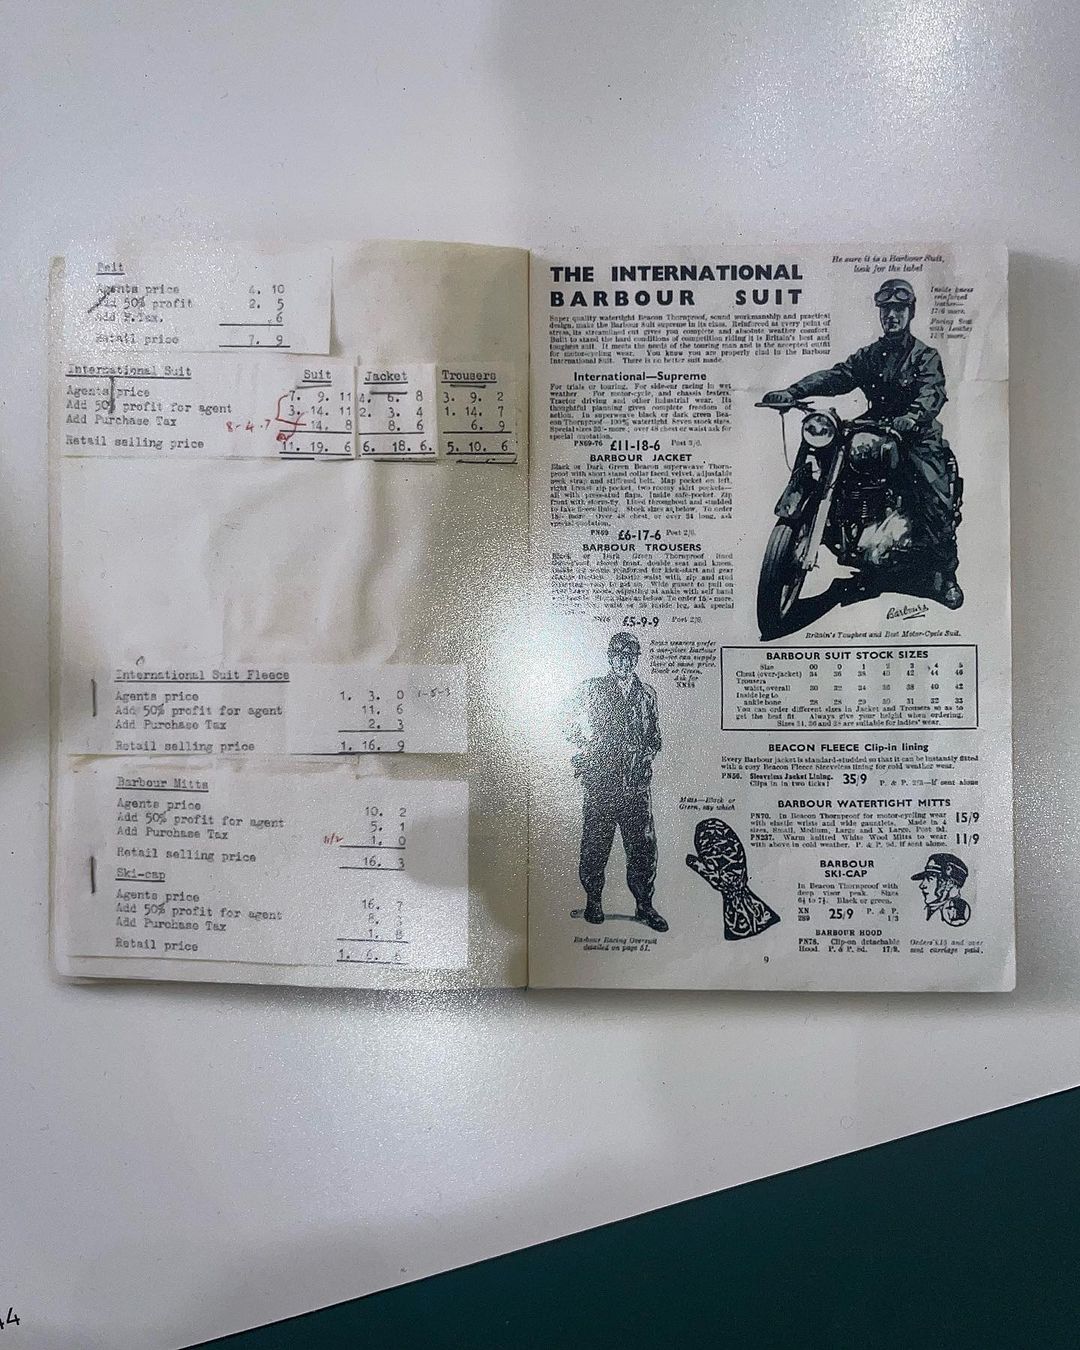 Belt
Agents price 4. 10
Add 50% profit 2. 5
Add P.Tax. .6
Retail price 7. 9
International Suit Suit Jacket Trousers
Agents price 7. 9. 11 4. 6. 8 3. 9. 2
Add 50% profit for agent 3. 14. 11 2. 3. 4 1. 14. 7
Add Purchase Tax 14. 8 8. 6 6. 9
8-4-7
Retail selling price 11. 19. 6 6. 18. 6. 5. 10. 6
International Suit Fleece
Agents price 1. 3. 0
Add 50% profit for agent 11. 6
Add Purchase Tax 2. 3
Retail selling price 1. 16. 9
Barbour Mitts
Agents price 10. 2
Add 50% profit for agent 5. 1
Add Purchase Tax 1. 0
11/2
Retail selling price 16. 3
Ski-cap
Agents price 16. 7
Add 50% profit for agent 8. 3
Add Purchase Tax 1. 8
Retail price 1. 6. 6
THE INTERNATIONAL
BARBOUR SUIT
Be sure it is a Barbour Suit,
look for the label
Super quality watertight Beacon Thornproof, sound workmanship and practical
design, make the Barbour Suit supreme in its class. Reinforced at every point of
stress, its streamlined cut gives you complete and absolute weather comfort.
Built to stand the hard conditions of competition riding it is Britain's best and
toughest suit. It meets the needs of the touring man and is the accepted outfit
for motor-cycling wear. You know you are properly clad in the Barbour
International Suit. There is no better suit made.
Inside knees
reinforced
leather—
17/6 more.
Facing Seat
with Leather
12/6 more.
International—Supreme
For trials or touring. For side-car racing in wet
weather. For motor-cycle, and chassis testers.
Tractor driving and other industrial wear. Its
thoughtful planning gives complete freedom of
action. In superweave black or dark green Bea-
con Thornproof—100% watertight. Seven stock sizes.
Special sizes 30/- more; over 48 chest or waist ask for
special quotation.
PN69-76 £11-18-6 Post 3/6.
BARBOUR JACKET
Black or Dark Green Beacon superweave Thorn-
proof with short stand collar faced velvet, adjustable
neck strap and stiffened belt. Map pocket on left,
right breast zip pocket, two roomy skirt pockets—
all with press-stud flaps. Inside safe-pocket. Zip
front with storm-fly. Lined throughout and studded
to take fleece lining. Stock sizes as below. To order
15/- more. Over 48 chest, or over 34 long, ask
special quotation.
PN69 £6-17-6 Post 2/6.
BARBOUR TROUSERS
Black or Dark Green Thornproof lined
throughout, closed front, double seat and knees.
reinforced for kick-start and gear
Elastic waist with zip and stud
Wide gusset to pull on
adjusting at ankle with self band
as below. To order 15/- more.
waist or 35 inside leg, ask special
£5-9-9 Post 2/6.
Some wearers prefer
a one-piece Barbour
Suit—we can supply
these at same price.
Black or Green.
Ask for
XN18
Barbours
Britain's Toughest and Best Motor-Cycle Suit.
BARBOUR SUIT STOCK SIZES
Size 00 0 1 2 3 4 5
Chest (over-jacket) 34 36 38 40 42 44 46
Trousers
waist, overall 30 32 34 36 38 40 42
Inside leg to
ankle bone 28 28 29 30 31 32 33
You can order different sizes in Jacket and Trousers so as to
get the best fit. Always give your height when ordering.
Sizes 34, 36 and 38 are suitable for ladies' wear.
BEACON FLEECE Clip-in lining
Every Barbour jacket is standard-studded so that it can be instantly fitted
with a cosy Beacon Fleece Sleeveless lining for cold weather wear.
PN56. Sleeveless Jacket Lining. 35/9 P. & P. 2/3—if sent alone
Clips in in two ticks!
Mitts—Black or
Green, say which
BARBOUR WATERTIGHT MITTS
PN70. In Beacon Thornproof for motor-cycling wear 15/9
with elastic wrists and wide gauntlets. Made in 4
sizes, Small, Medium, Large and X Large. Post 9d.
PN237. Warm knitted White Wool Mitts to wear 11/9
with above in cold weather. P. & P. 9d. if sent alone.
BARBOUR
SKI-CAP
In Beacon Thornproof with
deep visor peak. Sizes
6½ to 7½. Black or green.
XN 289 25/9 P. & P. 1/3
BARBOUR HOOD
PN78. Clip-on detachable
Hood. P. & P. 8d. 17/9.
Orders £15 and over
sent carriage paid.
Barbour Racing Oversuit
detailed on page 51.
9
44